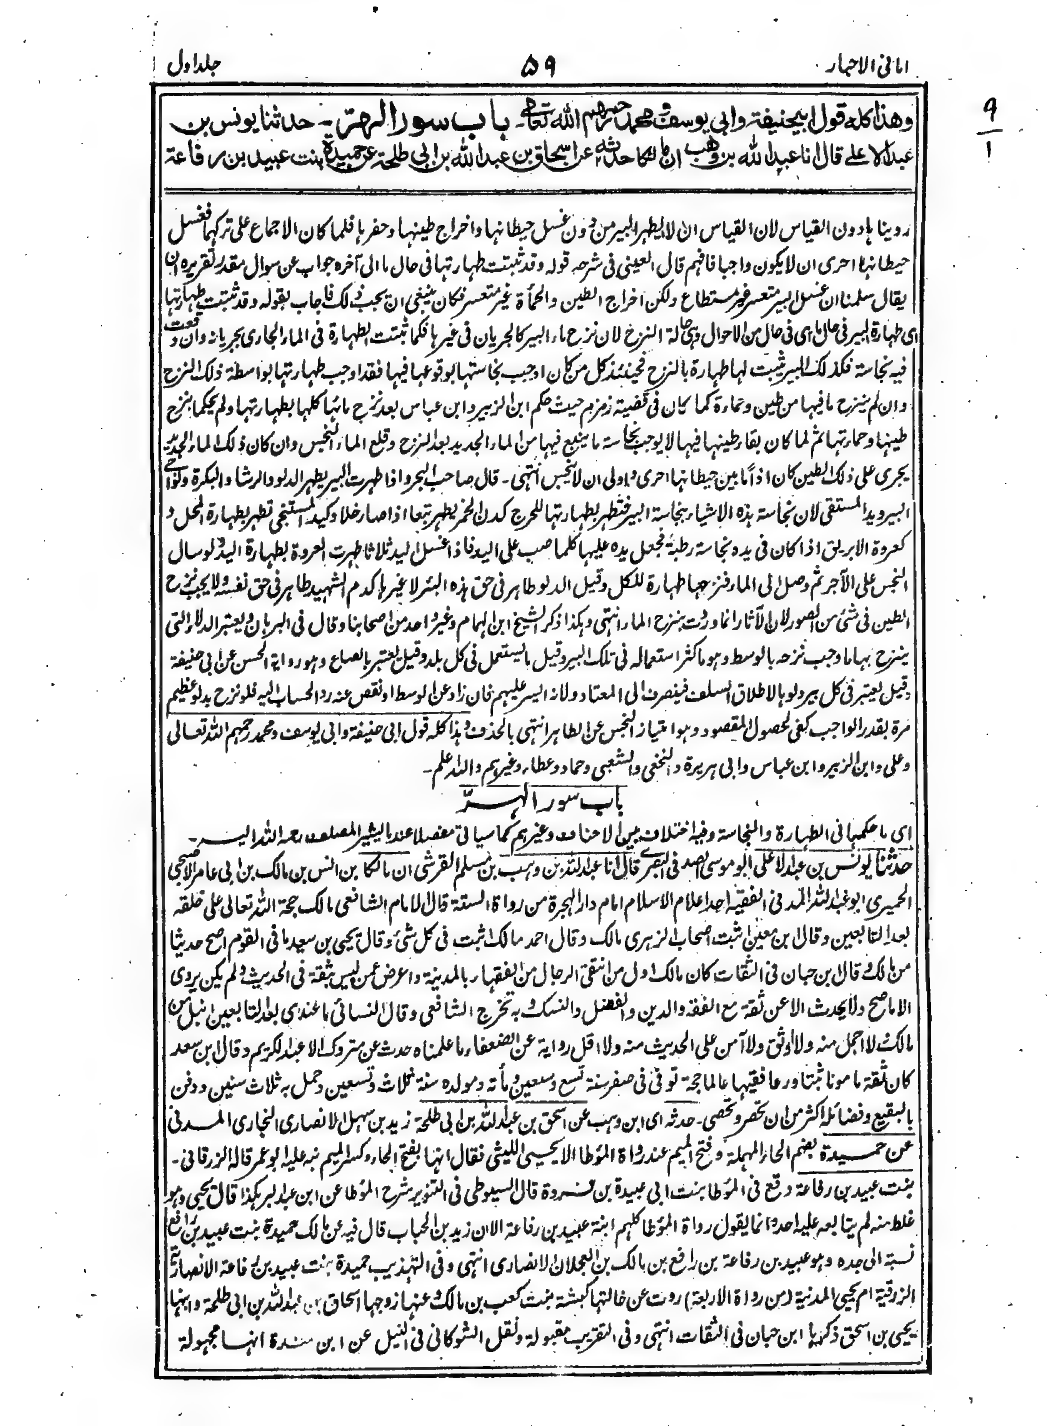 امانی الاحبار ۵۹ جلد اول
۹
۱
وهذا كله قول ابی حنیفة وابی یوسف ومحمد رحمهم الله تعالى۔ باب سور الهر۔ حدثنا یونس بن
عبد الاعلی قال انا عبد الله بن وهب ان مالکا حدثه عن اسحاق بن عبد الله بن ابی طلحة عن حمیدة بنت عبید بن رفاعة
روینا ہا دون القیاس لان القیاس ان لا یطہر البیر من دون غسل حیطانہا واخراج طینہا وحفرہا فلما کان الاجماع علی ترکہما فغسل
حیطانہا احری ان لا یکون واجبا فافہم قال العینی فی شرحہ قولہ وقد ثبتت طہارتہا فی حال ما الی آخرہ جواب عن سوال مقدر تقریرہ ان
یقال سلمنا ان غسل البیر متعسر غیر مستطاع ولکن اخراج الطین والحمأة غیر متعسر فکان ینبغی ان یجب ذلک فاجاب بقولہ وقد ثبتت طہارتہا
ای طہارة البیر فی حال ما ای فی حال من الاحوال وہی حالة النزح لان نزح ماء البیر کالجریان فی غیرہا فکما ثبتت طہارة فی الماء الجاری بجریانہ وان وقعت
فیہ نجاسة فکذلک البیر ثبت لہا طہارة بالنزح فحینئذ کل من کان اوجب نجاستہا بوقوعہا فیہا فقد اوجب طہارتہا بواسطة ذلک النزح
وان لم ینزح ما فیہا من طین وحمأة کما کان فی قضیة زمزم حیث حکم ابن الزبیر وابن عباس بعد نزح مائہا کلہا بطہارتہا ولم یحکما بنزح
طینہا وحمأتہا ثم لما کان بقاء طینہا فیہا لا یوجب نجاسة ما ینبع فیہا من الماء الجدید بعد النزح وقلع الماء النجس وان کان ذلک الماء الجدید
یجری علی ذلک الطین کان اذا ما بین حیطانہا احری واولی ان لا ینجس انتہی۔ قال صاحب البحر واذا طہرت البیر یطہر الدلو والرشاء والبکرة ونواحی
البیر وید المستقی لان نجاسة ہذہ الاشیاء بنجاسة البیر فتطہر بطہارتہا للحرج کدن الخمر یطہر تبعا اذا صار خلا وکید المستنجی تطہر بطہارة المحل و
کعروة الابریق اذا کان فی یدہ نجاسة رطبة فجعل یدہ علیہا کلما صب علی الید فاذا غسل الید ثلاثا طہرت العروة بطہارة الید ولو سال
النجس علی الآجر ثم وصل الی الماء فنزحہا طہارة للکل وقیل الدلو طاہر فی حق ہذہ البئر لا غیرہا کدم الشہید طاہر فی حق نفسہ ولا یجب نزح
الطین فی شئ من الصور لان الآثار انما وردت بنزح الماء انتہی وہکذا ذکر الشیخ ابن الہمام وغیر واحد من اصحابنا وقال فی البرہان ویعتبر الدلاء التی
ینزح بہا ما وجب نزحہ بالوسط وہو ما کثر استعمالہ فی تلک البیر وقیل ما یستعمل فی کل بلد وقیل یعتبر بالصاع وہو روایة الحسن عن ابی حنیفة
وقیل یعتبر فی کل بیر دلوہا لاطلاق السلف فینصرف الی المعتاد ولانہ ایسر علیہم فان زاد عن الوسط او نقص عنہ رد الحساب الیہ فلو نزح بدلو عظیم
مرة بقدر الواجب کفی لحصول المقصود وہو امتیاز النجس عن الطاہر انتہی بالحذف وہذا کلہ قول ابی حنیفة وابی یوسف ومحمد رحمہم اللہ تعالی
وعلی وابن الزبیر وابن عباس وابی ہریرة والنخعی والشعبی وحماد وعطاء وغیرہم واللہ اعلم۔
باب سور الہر
ای ما حکمہا فی الطہارة والنجاسة وفیہ اختلاف بین الاحناف وغیرہم کما سیاتی مفصلا عند ما یشیر المصنف رحمہ اللہ الیہ۔
حدثنا یونس بن عبد الاعلی ابو موسی الصدفی البصری قال انا عبد اللہ بن وہب بن مسلم القرشی ان مالکا بن انس بن مالک بن ابی عامر الاصبحی
الحمیری ابو عبد اللہ المدنی الفقیہ احد اعلام الاسلام امام دار الہجرة من رواة الستة قال الامام الشافعی مالک حجة اللہ تعالی علی خلقہ
بعد التابعین وقال ابن معین اثبت اصحاب الزہری مالک وقال احمد مالک اثبت فی کل شئ وقال یحیی بن سعید ما فی القوم اصح حدیثا
من مالک وقال ابن حبان فی الثقات کان مالک اول من انتقی الرجال من الفقہاء بالمدینة واعرض عمن لیس بثقة فی الحدیث ولم یکن یروی
الا ما صح ولا یحدث الا عن ثقة مع الفقہ والدین والفضل والنسک وبہ تخرج الشافعی وقال النسائی ما عندی بعد التابعین انبل من
مالک ولا اجل منہ ولا اوثق ولا آمن علی الحدیث منہ ولا اقل روایة عن الضعفاء ما علمناہ حدث عن متروک الا عبد الکریم وقال ابن سعد
کان ثقة مامونا ثبتا ورعا فقیہا عالما حجة توفی فی صفر سنة تسع وسبعین ومائة ومولدہ سنة ثلاث وتسعین وحمل بہ ثلاث سنین ودفن
بالبقیع وفضائلہ اکثر من ان تحصر وتحصی۔ حدثہ ای ابن وہب عن اسحق بن عبد اللہ بن ابی طلحة زید بن سہل الانصاری النجاری المدنی
عن حمیدة بضم الحاء المہملة وفتح المیم عند رواة المؤطا الا یحیی اللیثی فقال انہا بفتح الحاء وکسر المیم نبہ علیہ ابو عمر قالہ الزرقانی۔
بنت عبید بن رفاعة وقع فی المؤطا بنت ابی عبیدة بن فروة قال السیوطی فی التنویر شرح المؤطا عن ابن عبد البر ہکذا قال یحیی وہو
غلط منہ لم یتابعہ علیہ احد وانما یقول رواة المؤطا کلہم ابنة عبید بن رفاعة الا ان زید بن الحباب قال فیہ عن مالک حمیدة بنت عبید بن رافع
نسبة الی جدہ وہو عبید بن رفاعة بن رافع بن مالک بن العجلان الانصاری انتہی وفی التہذیب حمیدة بنت عبید بن رفاعة الانصاریة
الزرقیة ام یحیی المدنیة (من رواة الاربعة) روت عن خالتہا کبشة بنت کعب بن مالک وعنہا زوجہا اسحاق بن عبد اللہ بن ابی طلحة وابنہا
یحیی بن اسحق ذکرہا ابن حبان فی الثقات انتہی وفی التقریب مقبولة ونقل الشوکانی فی النیل عن ابن مندة انہا مجہولة